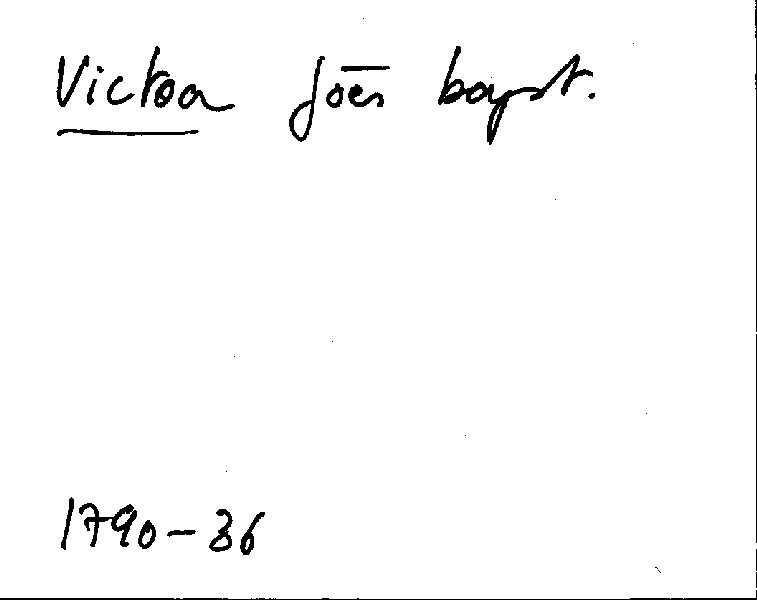 Victoa Joēs bapt.
1790-36